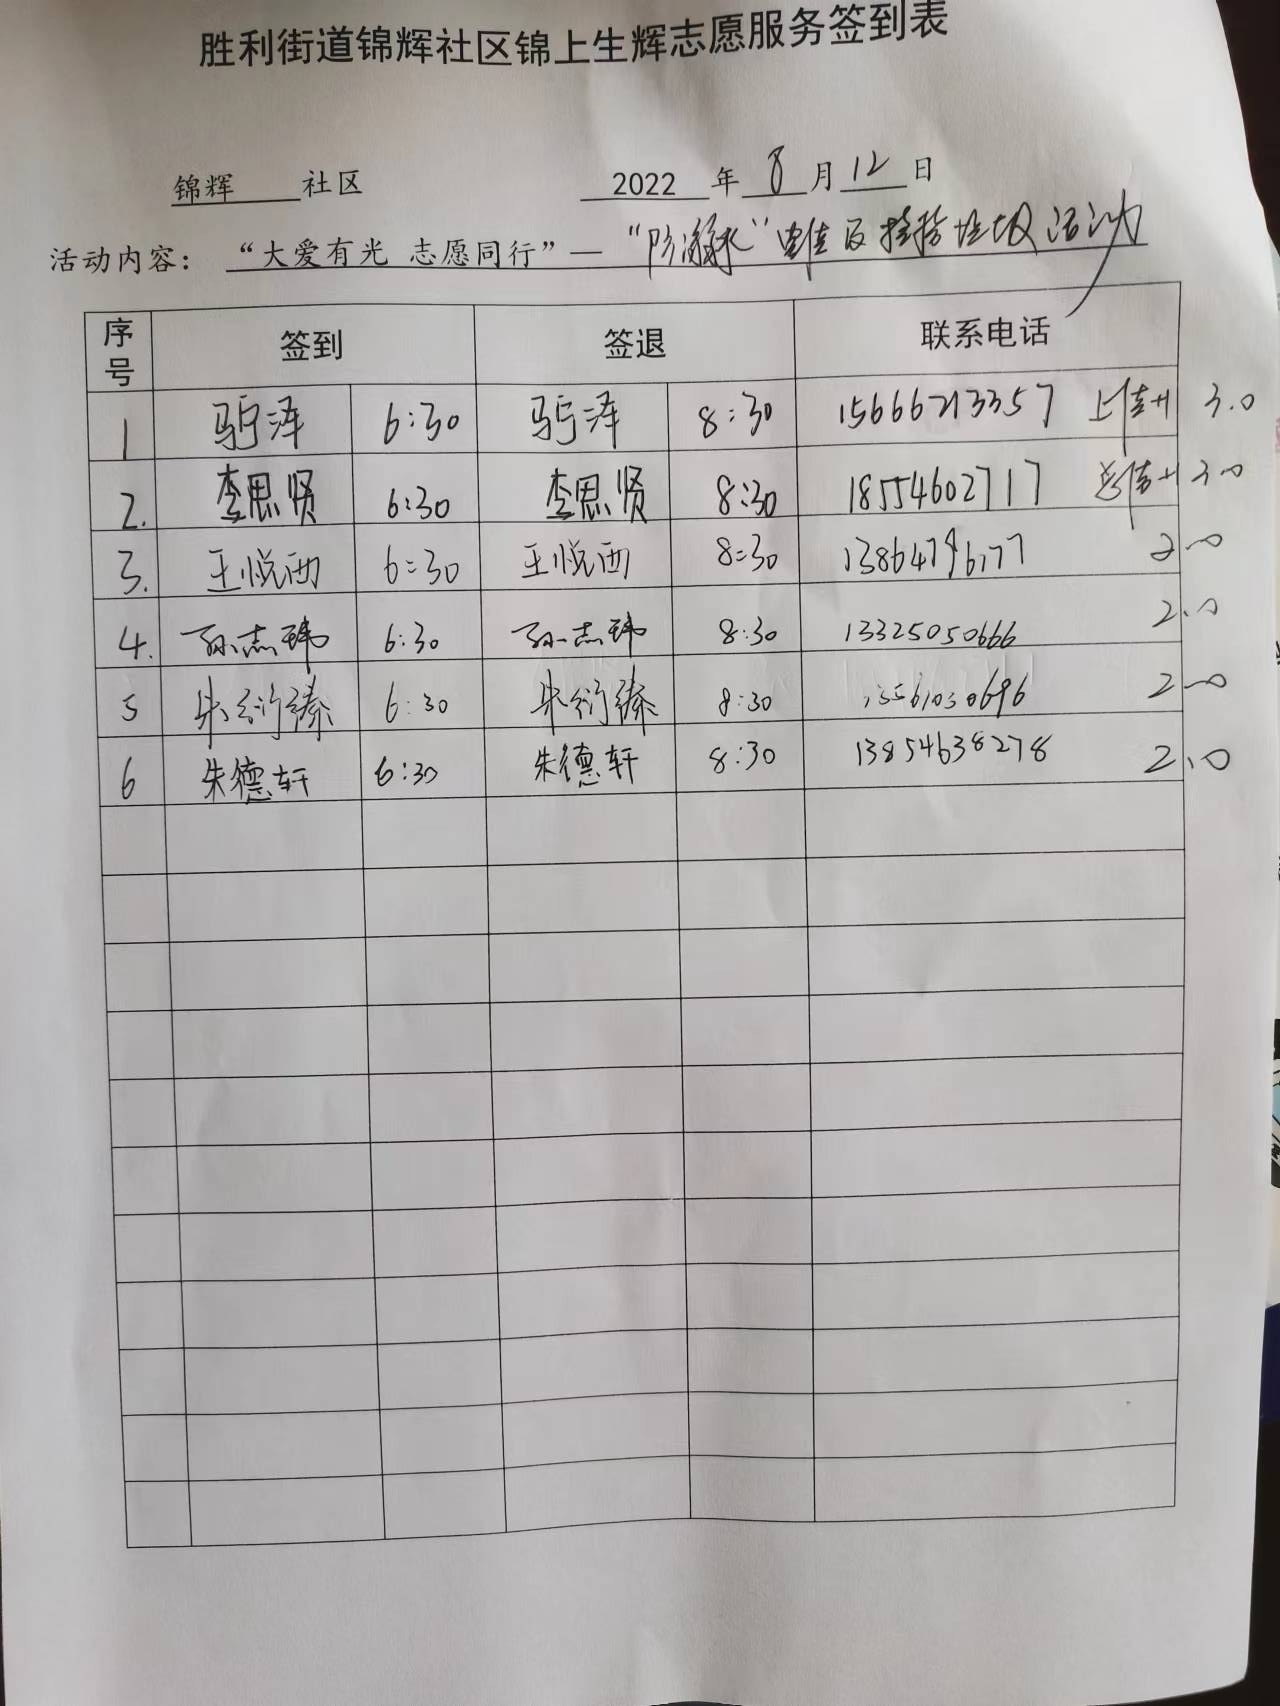 胜利街道锦辉社区锦上生辉志愿服务签到表
锦辉 社区 2022 年 8 月 12 日
活动内容： “大爱有光 志愿同行”— “防溺水” 及捡拾垃圾活动
序号 签到 签退 联系电话
1 泽 6:30 泽 8:30 15666213357 3.0
2. 李思贤 6:30 李思贤 8:30 18554602717 3.0
3. 王悦西 6:30 王悦西 8:30 2.0
4. 孙志玮 6:30 孙志玮 8:30 13325050666 2.0
5 朱衍臻 6:30 朱衍臻 8:30 2.0
6 朱德轩 6:30 朱德轩 8:30 13854638278 2.0